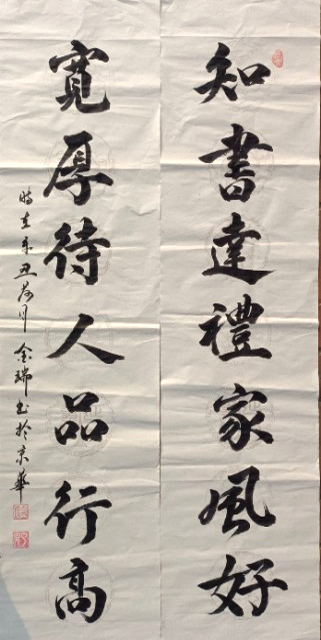 知書達禮家風好
寬厚待人品行高
時在辛丑荷月 金瑞书於京華